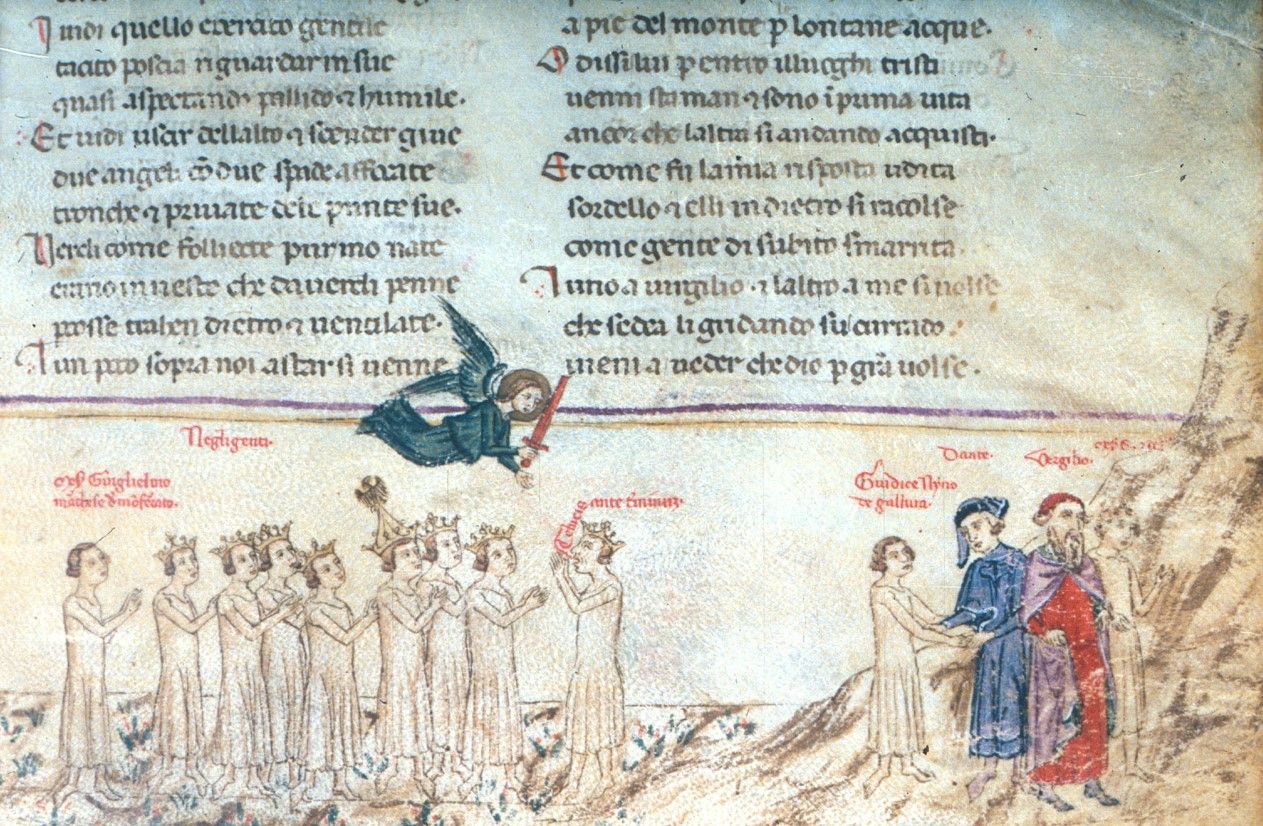 I vidi quello exercito gentile
tacito poscia riguardar in sue
quasi aspectando pallido et humile.
Et vidi uscir dellalto et scender giue
due angeli cō due spade affocate
tronche et private dele punte sue.
Verdi come fogliecte pur mo nate
erano in veste che da verdi penne
percosse trahen dietro et ventilate.
Lun poco sopra noi a star si venne
a pie del monte p lontane acque.
O dissi lui p entro i luoghi tristi
venni staman et sono ī prima vita
ancor che laltra si andando acquisti.
Et come fu la mia risposta udita
sordello et elli in dietro si racolse
come gente di subito smarrita.
Luno a virgilio et laltro a me si volse
che sedea li gridando su currado
vieni a veder che dio p grā volse.
Negligenti.
Guiglielmo
Te lucis ante
Giudice Nyno
de gallura.
Dante.
Vergilio.